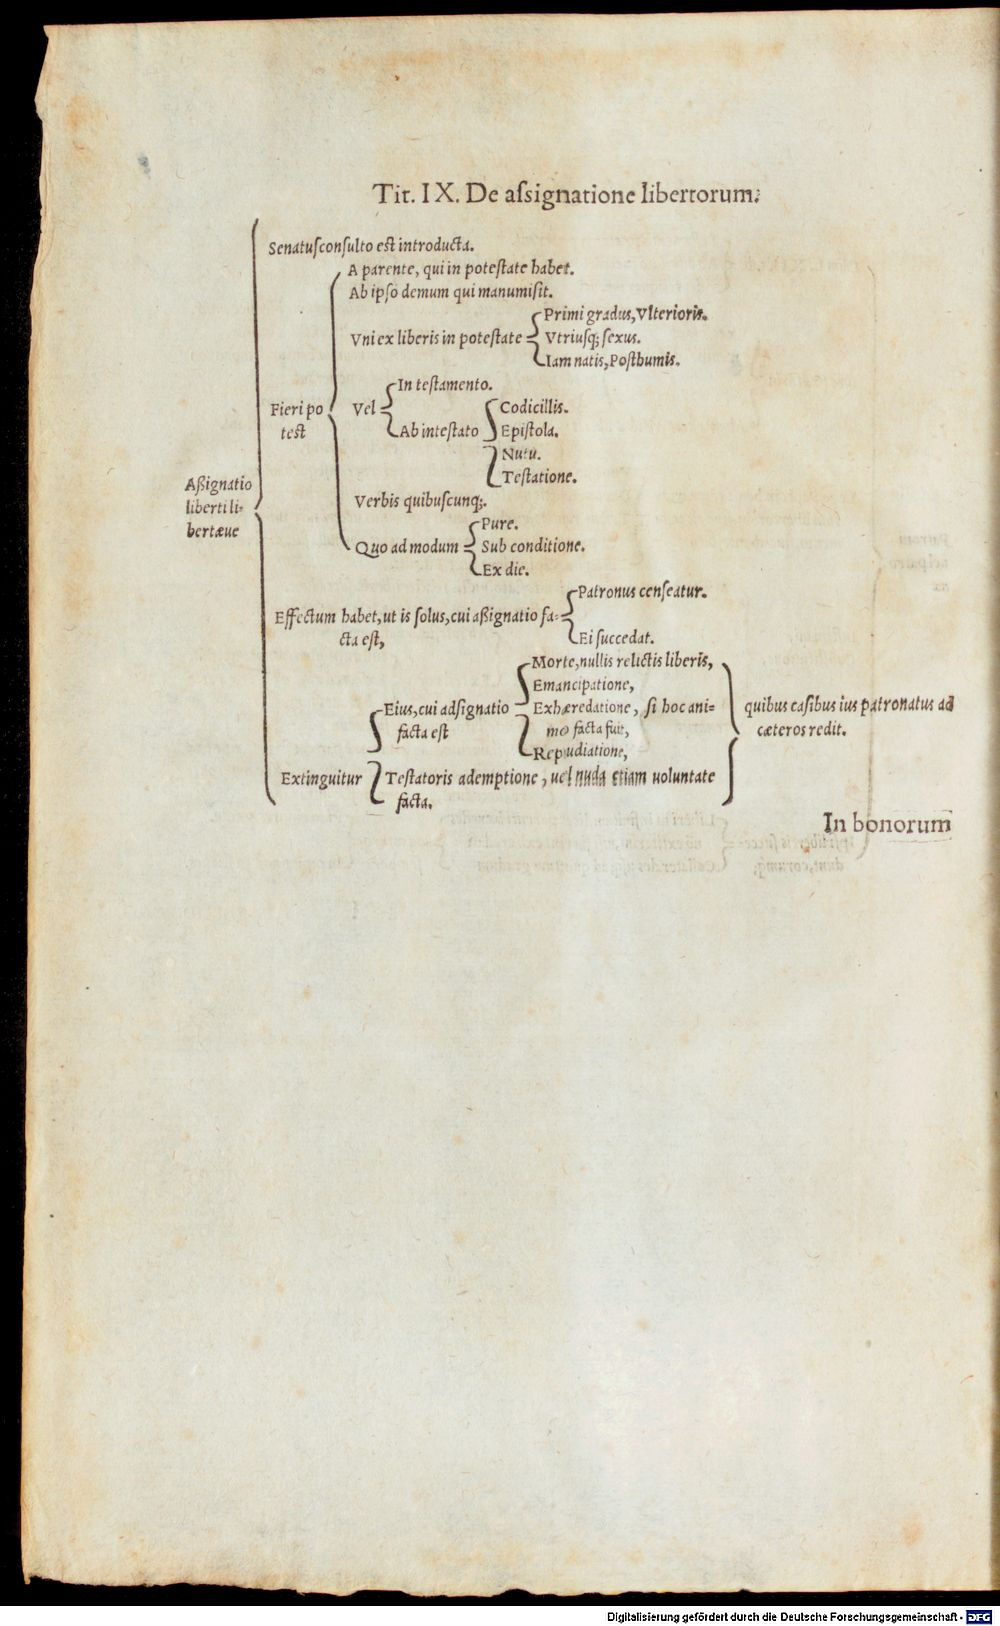 Tit. IX. De aſsignatione libertorum.
Senatuſconſulto est introducta.
A parente, qui in poteſtate habet.
Ab ipſo demum qui manumiſit.
Primi gradus, Vlterioris.
Vni ex liberis in poteſtate
Vtriuſq; ſexus.
Iam natis, Poſthumis.
In teſtamento.
Fieri po
test
Vel
Codicillis.
Ab inteſtato
Epiſtola.
Nutu.
Teſtatione.
Aßignatio
liberti li-
bertæue
Verbis quibuſcunq;.
Pure.
Quo ad modum
Sub conditione.
Ex die.
Patronus cenſeatur.
Effectum habet, ut is ſolus, cui aßignatio fa-
cta eſt,
Ei ſuccedat.
Morte, nullis relictis liberis,
Emancipatione,
Eius, cui adſignatio
facta est
Exhæredatione, ſi hoc ani-
mo facta fuit,
quibus caſibus ius patronatus ad
cæteros redit.
Repudiatione,
Extinguitur
Teſtatoris ademptione, uel nuda etiam uoluntate
facta.
In bonorum
Digitalisierung gefördert durch die Deutsche Forschungsgemeinschaft - DFG